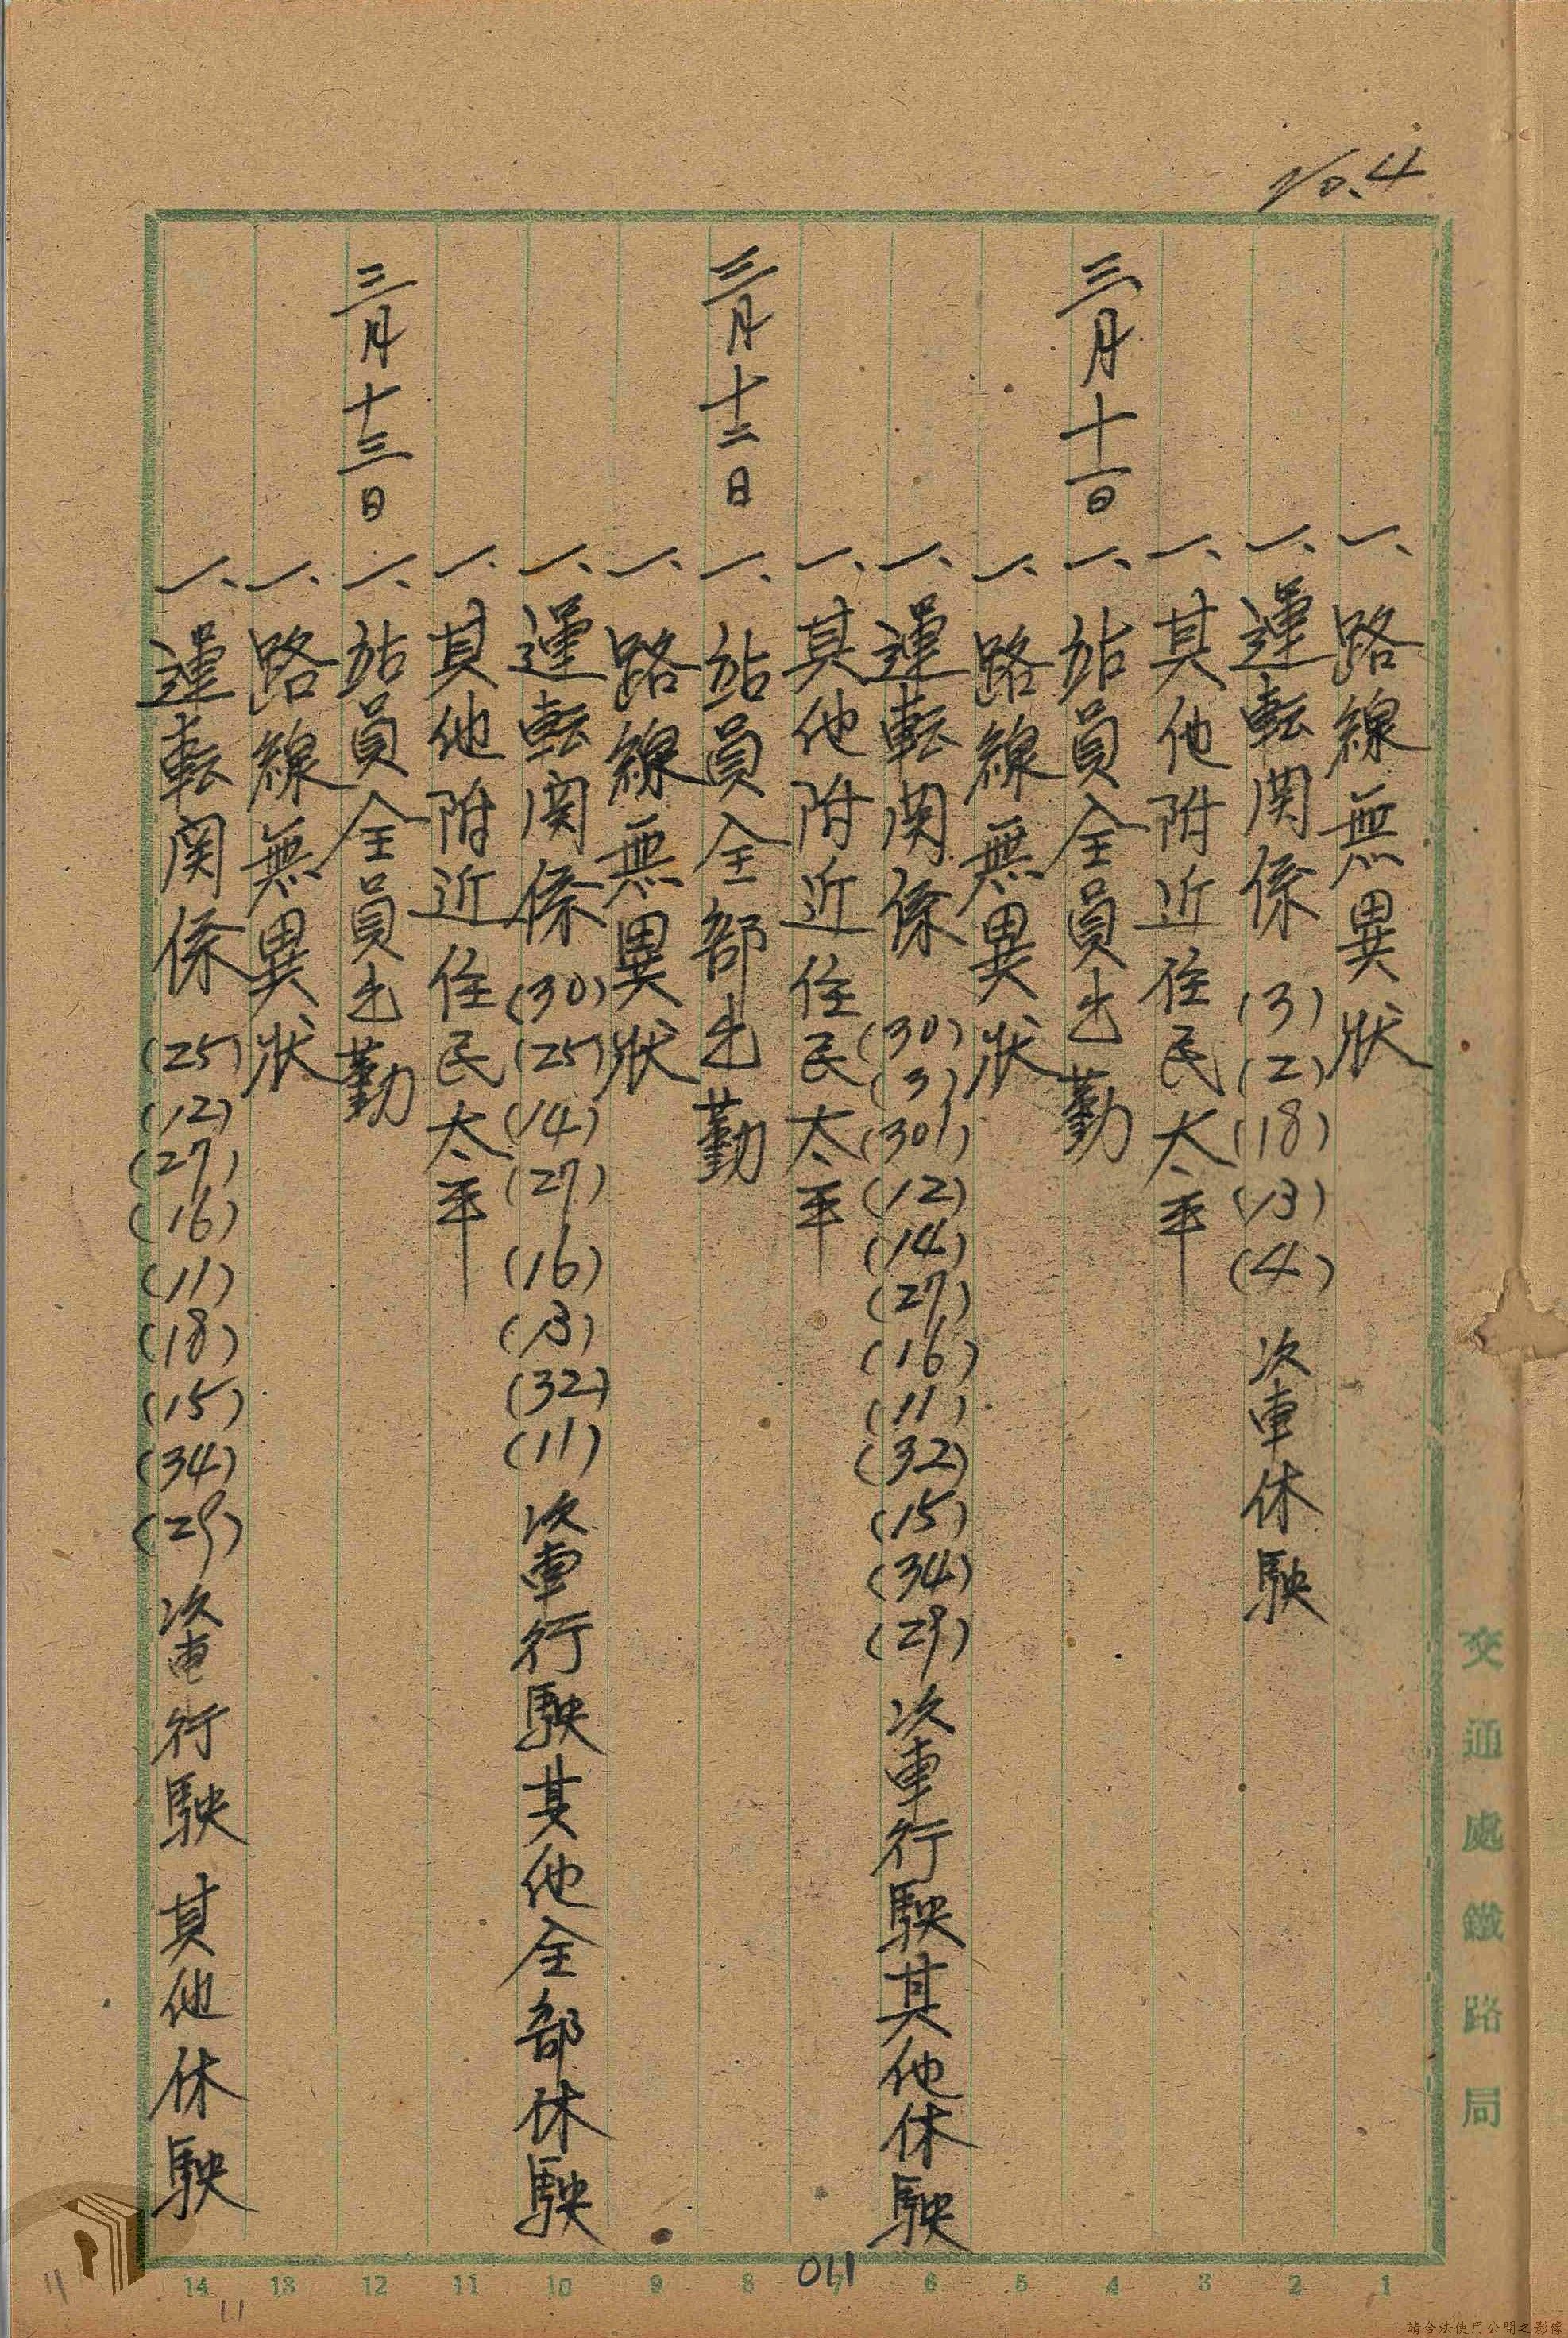 No.4
一、路線無異状
一、運転関係 (3)(2)(18)(13)(4) 次車休駛
一、其他附近住民太平
三月十一日 一、站員全員出勤
一、路線無異状
一、運転関係 (30)(3)(301)(12)(14)(27)(16)(11)(32)(15)(34)(29) 次車行駛其他休駛
一、其他附近住民太平
三月十二日 一、站員全部出勤
一、路線無異状
一、運転関係 (30)(25)(14)(27)(16)(13)(32)(11) 次車行駛其他全部休駛
一、其他附近住民太平
三月十三日 一、站員全員出勤
一、路線無異状
一、運転関係 (25)(12)(27)(16)(11)(18)(15)(34)(29) 次車行駛其他休駛
交通處鐵路局
14 13 12 11 10 9 8 7 6 5 4 3 2 1
011
11
11
請合法使用公開之影像